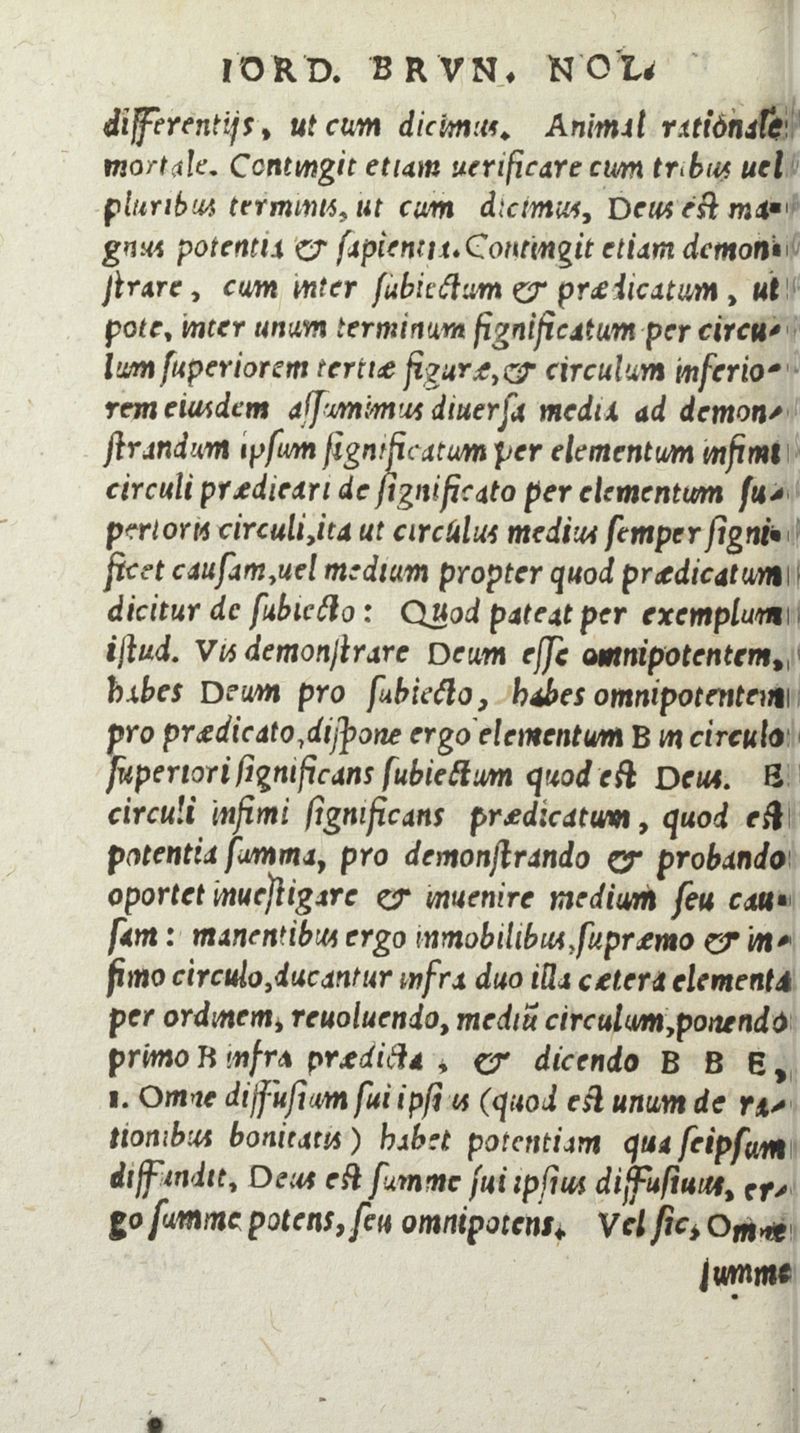 IORD. BRVN. NOL.
differentijs, ut cum dicimus. Animal rationale
mortale. Contingit etiam uerificare cum tribus uel
pluribus terminis, ut cum dicimus, Deus est ma-
gnus potentia & sapientia. Contingit etiam demon-
strare, cum inter subiectum & prædicatum, ut
pote, inter unum terminum significatum per circu-
lum superiorem tertiæ figuræ, & circulum inferio-
rem eiusdem assumimus diuersa media ad demon-
strandum ipsum significatum per elementum infimi
circuli prædicari de significato per elementum su-
perioris circuli, ita ut circulus medius semper signi-
ficet causam, uel medium propter quod prædicatum
dicitur de subiecto: Quod pateat per exemplum
istud. Vis demonstrare Deum esse omnipotentem,
habes Deum pro subiecto, habes omnipotentem
pro prædicato, dispone ergo elementum B in circulo
superiori significans subiectum quod est Deus. E
circuli infimi significans prædicatum, quod est
potentia summa, pro demonstrando & probando
oportet inuestigare & inuenire medium seu cau-
sam: manentibus ergo immobilibus, supræmo & in-
fimo circulo, ducantur infra duo illa cætera elementa
per ordinem, reuoluendo, mediũ circulum, ponendo
primo B infra prædicta, & dicendo B B E,
1. Omne diffusium sui ipsius (quod est unum de ra-
tionibus bonitatis) habet potentiam qua seipsum
diffundit, Deus est summe sui ipsius diffusiuus, er-
go summe potens, seu omnipotens. Vel sic, Omne
summe